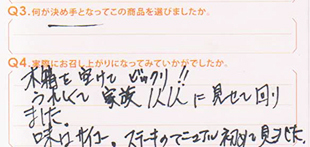 Q3.何が決め手となってこの商品を選びましたか。
Q4.実際にお召し上がりになってみていかがでしたか。
木箱を空けて ビックリ!!
うれしくて 家族 1人1人に見せて回り
ました。
味はサイコー。ステーキのマニュアル初めて見ました。